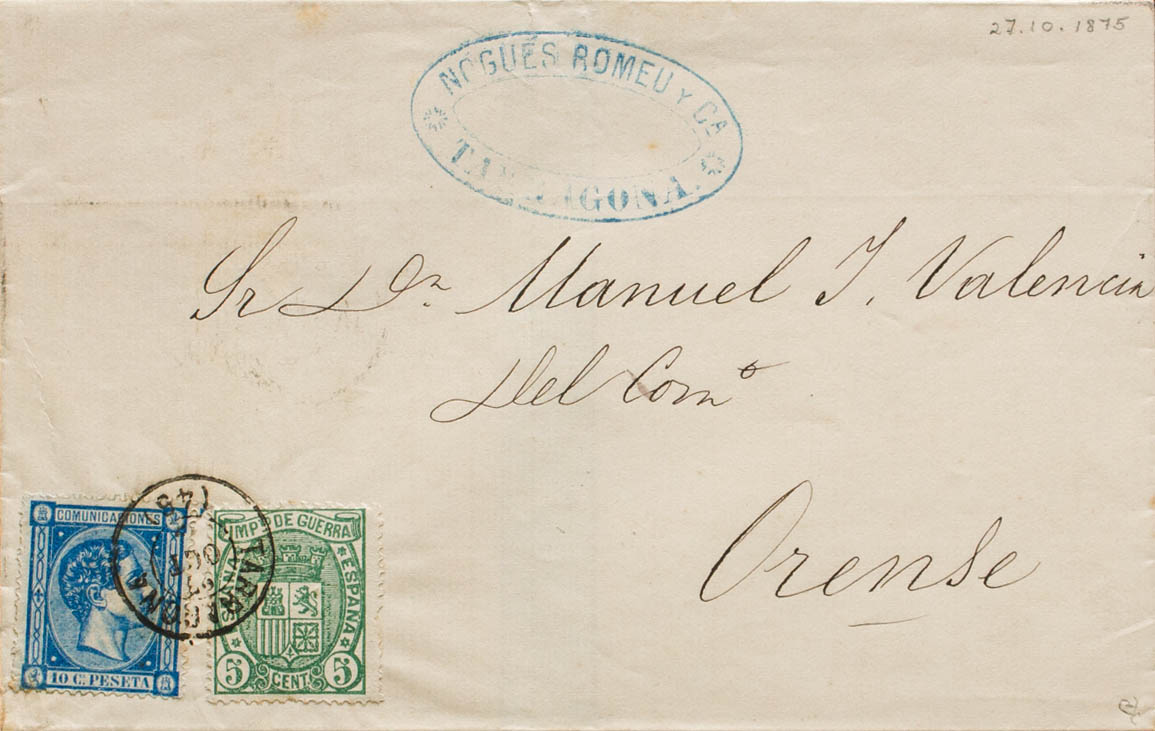 27.10.1875
NOGUÉS ROMEU Y Cª
TARRAGONA.
Sr Dn Manuel J. Valencia
Del Comº
Orense
COMUNICACIONES
10 C. PESETA
TARRAGONA
OCT
IMPº DE GUERRA
ESPAÑA
5 CENT. 5